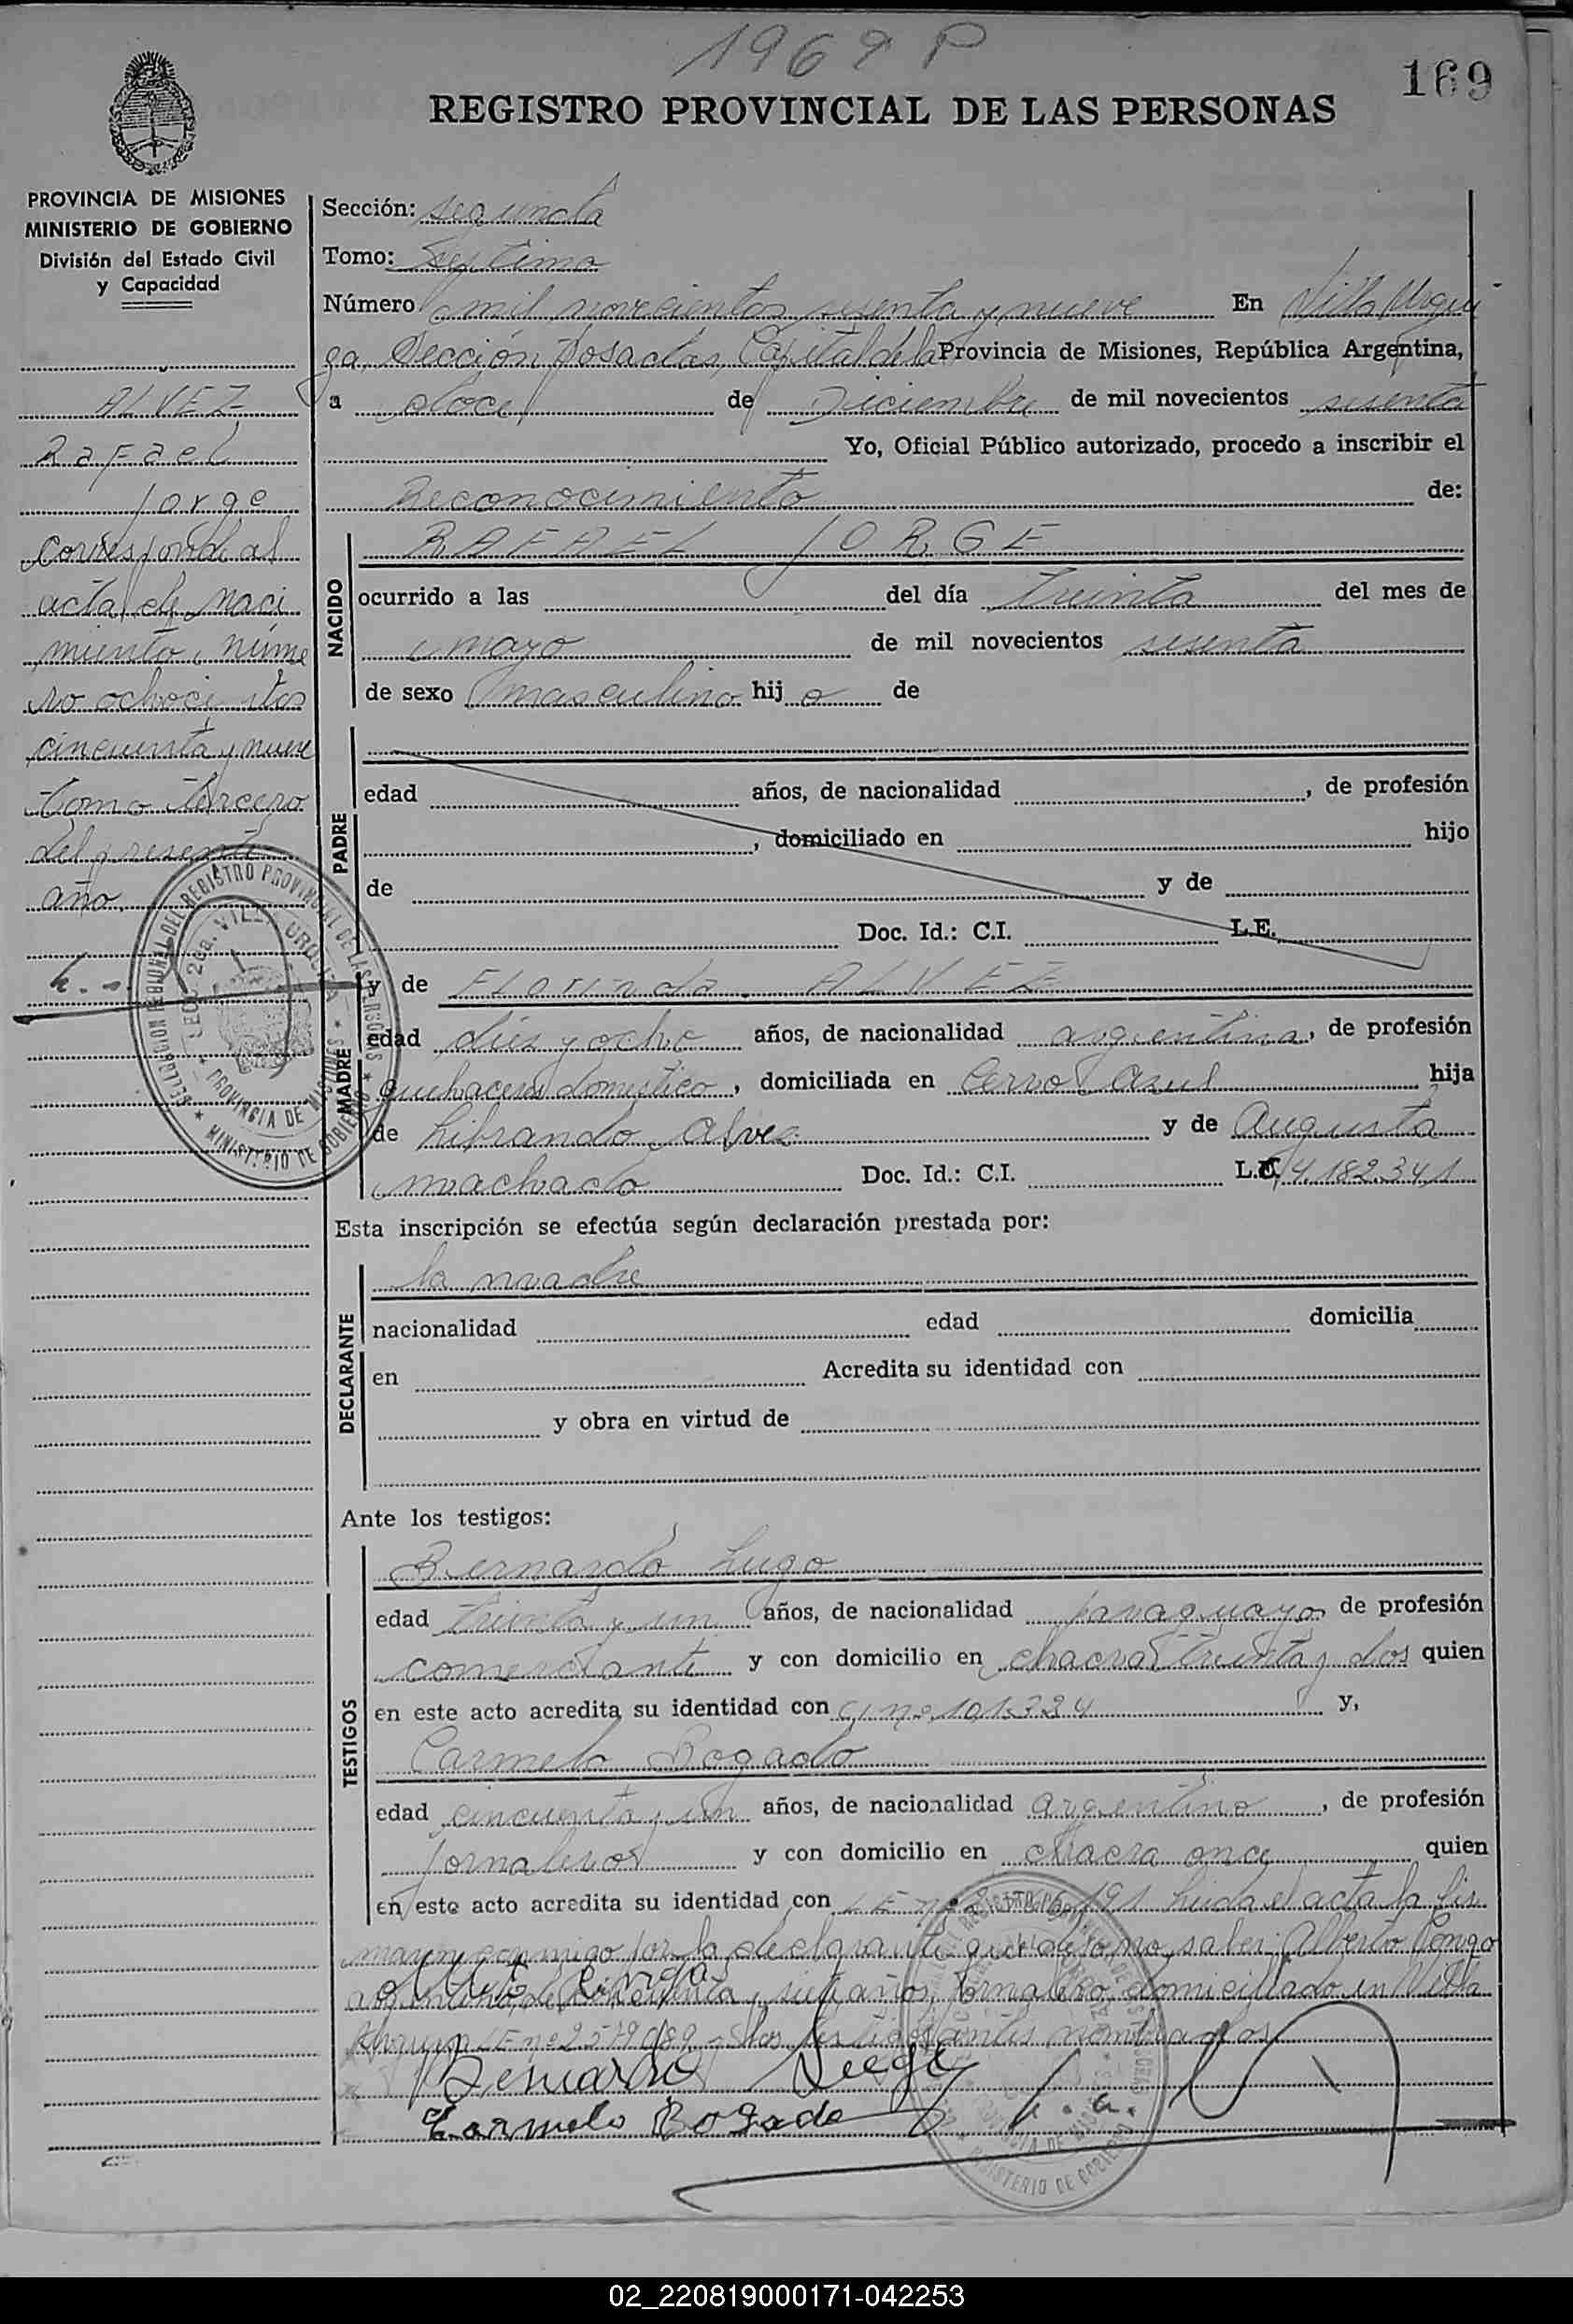 1969 P
169
REGISTRO PROVINCIAL DE LAS PERSONAS
PROVINCIA DE MISIONES
MINISTERIO DE GOBIERNO
División del Estado Civil
y Capacidad
ALVEZ
Rafael
Jorge
Corresponde al
acta de naci
miento, núme
ro ochocientos
cincuenta y nueve
tomo tercero
del presente
año.
Sección: segunda
Tomo: Septimo
Número mil novecientos sesenta y nueve En Villa Urqui
za, Sección Posadas, Capital de la Provincia de Misiones, República Argentina,
a doce de Diciembre de mil novecientos sesenta
Yo, Oficial Público autorizado, procedo a inscribir el
Reconocimiento de:
NACIDO
RAFAEL JORGE
ocurrido a las del día treinta del mes de
mayo de mil novecientos sesenta
de sexo masculino hijo de
PADRE
edad años, de nacionalidad , de profesión
, domiciliado en hijo
de y de
Doc. Id.: C.I. L.E.
MADRE
y de Florinda ALVEZ
edad diés y ocho años, de nacionalidad argentina, de profesión
quehaceres domestico, domiciliada en Cerro Azul hija
de Librando Alvez y de Augusta
machado Doc. Id.: C.I. L.C. 4.182.341
Esta inscripción se efectúa según declaración prestada por:
DECLARANTE
la madre
nacionalidad edad domicilia
en Acredita su identidad con
y obra en virtud de
Ante los testigos:
TESTIGOS
Bernardo Lugo
edad treinta y un años, de nacionalidad paraguayo de profesión
comerciante y con domicilio en chacra treinta y dos quien
en este acto acredita su identidad con C.I. nº 101.724 y,
Carmelo Bogado
edad cincuenta y un años, de nacionalidad argentino, de profesión
jornalero y con domicilio en chacra once quien
en este acto acredita su identidad con L E nº 191 Leida el acta la fir
man conmigo por la declarante que dijo no saber Alberto
argentino, de cincuenta y siete años, jornalero, domiciliado en Villa
Urquiza LE nº 2579089 y los testigos antes nombrados
Bernardo Lugo
Carmelo Bogado
DELEGACION REGIONAL DEL REGISTRO PROVINCIAL DE LAS PERSONAS
SECC. 2da. VILLA URQUIZA
PROVINCIA DE MISIONES
MINISTERIO DE GOBIERNO
02_220819000171-042253